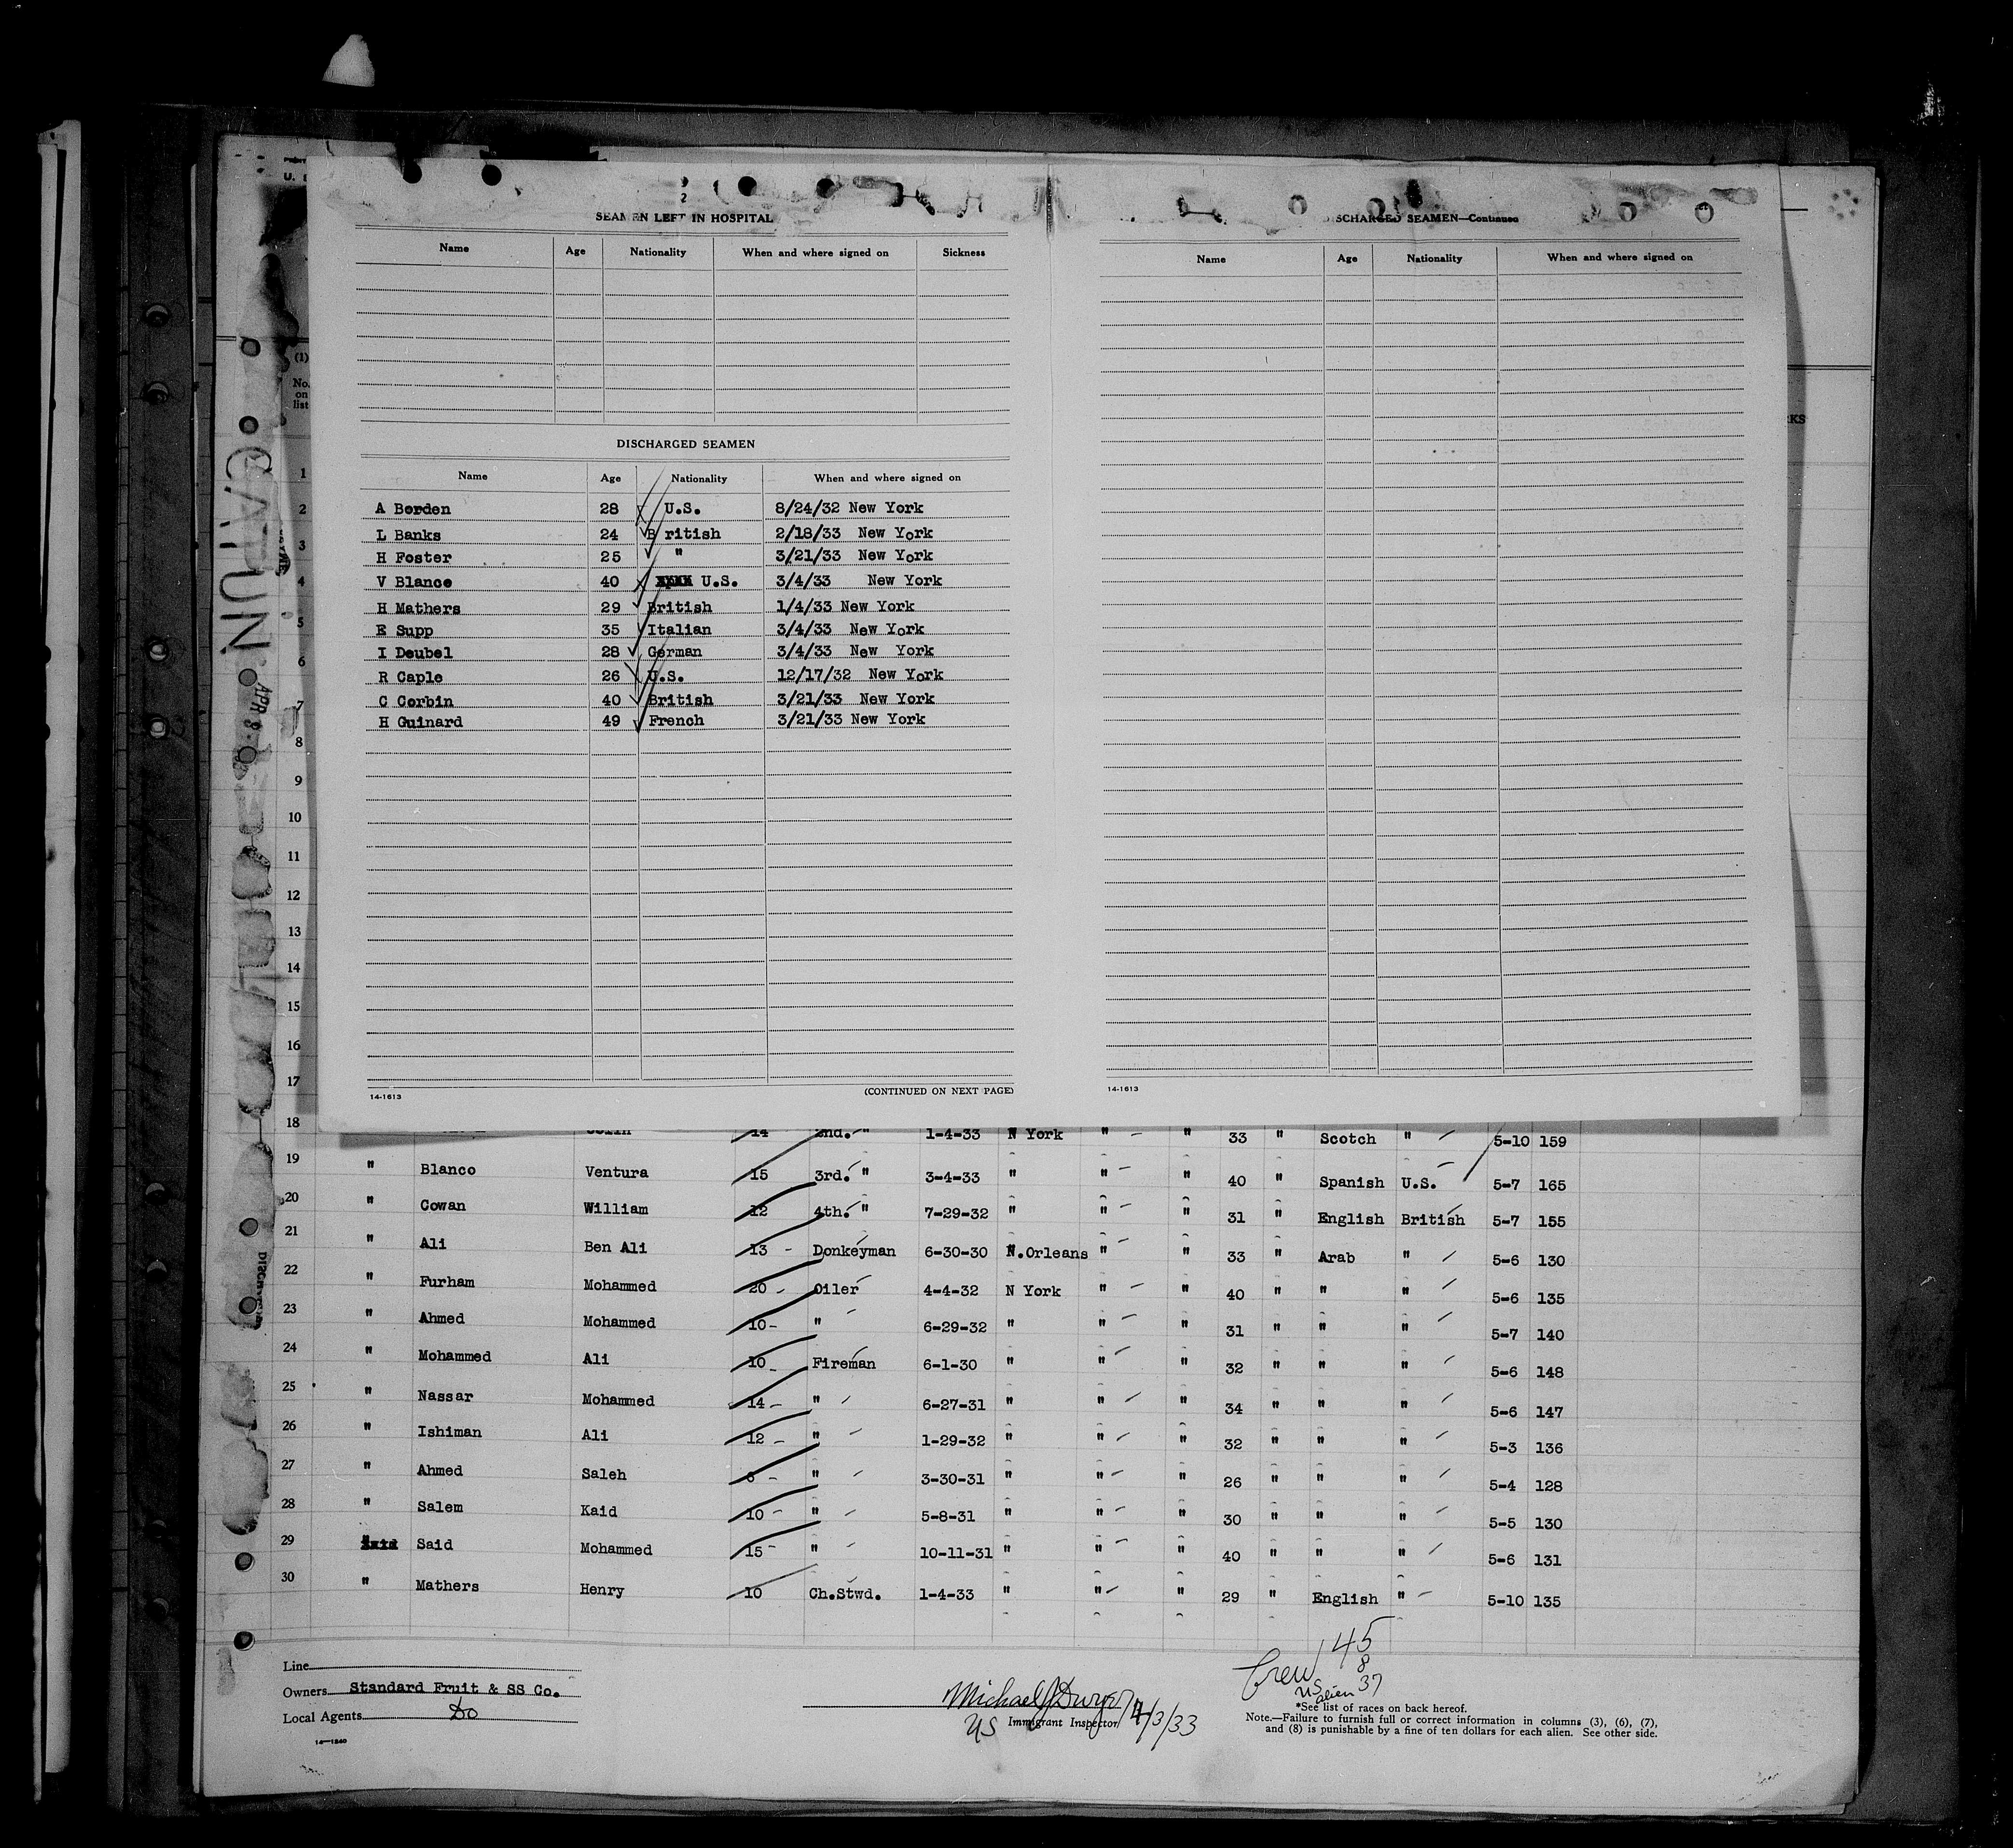 SEAMEN LEFT IN HOSPITAL
Name Age Nationality When and where signed on Sickness
DISCHARGED SEAMEN
Name Age Nationality When and where signed on
A Borden 28 U.S. 8/24/32 New York
L Banks 24 British 2/18/33 New York
H Foster 25 " 3/21/33 New York
V Blance 40 U.S. 3/4/33 New York
H Mathers 29 British 1/4/33 New York
E Supp 35 Italian 3/4/33 New York
I Deubel 28 German 3/4/33 New York
R Caple 26 U.S. 12/17/32 New York
C Corbin 40 British 3/21/33 New York
H Guinard 49 French 3/21/33 New York
14-1613 (CONTINUED ON NEXT PAGE)
DISCHARGED SEAMEN—Continued
Name Age Nationality When and where signed on
14-1613
(1)
No.
on
list
RKS
CATUN
APR 8
1
2
3
4
5
6
7
8
9
10
11
12
13
14
15
16
17
18 14 2nd. " 1-4-33 N York " " 33 " Scotch " 5-10 159
19 " Blanco Ventura 15 3rd. " 3-4-33 " " " 40 " Spanish U.S. 5-7 165
20 " Cowan William 12 4th. " 7-29-32 " " " 31 " English British 5-7 155
21 " Ali Ben Ali 13 - Donkeyman 6-30-30 N.Orleans " " 33 " Arab " 5-6 130
22 " Furham Mohammed 20 - Oiler 4-4-32 N York " " 40 " " " 5-6 135
23 " Ahmed Mohammed 10 - " 6-29-32 " " " 31 " " " 5-7 140
24 " Mohammed Ali 10 - Fireman 6-1-30 " " " 32 " " " 5-6 148
25 " Nassar Mohammed 14 - " 6-27-31 " " " 34 " " " 5-6 147
26 " Ishiman Ali 12 - " 1-29-32 " " " 32 " " " 5-3 136
27 " Ahmed Saleh - " 3-30-31 " " " 26 " " " 5-4 128
28 " Salem Kaid 10 - " 5-8-31 " " " 30 " " " 5-5 130
29 " Said Mohammed 15 - " 10-11-31 " " " 40 " " " 5-6 131
30 " Mathers Henry 10 Ch.Stwd. 1-4-33 " " " 29 " English " 5-10 135
Line
Owners Standard Fruit & SS Co.
Local Agents Do
14—1240
Michael J Dwyer 4/3/33
US Immigrant Inspector
Crew 45
US 8
alien 37
*See list of races on back hereof.
Note.—Failure to furnish full or correct information in columns (3), (6), (7),
and (8) is punishable by a fine of ten dollars for each alien. See other side.